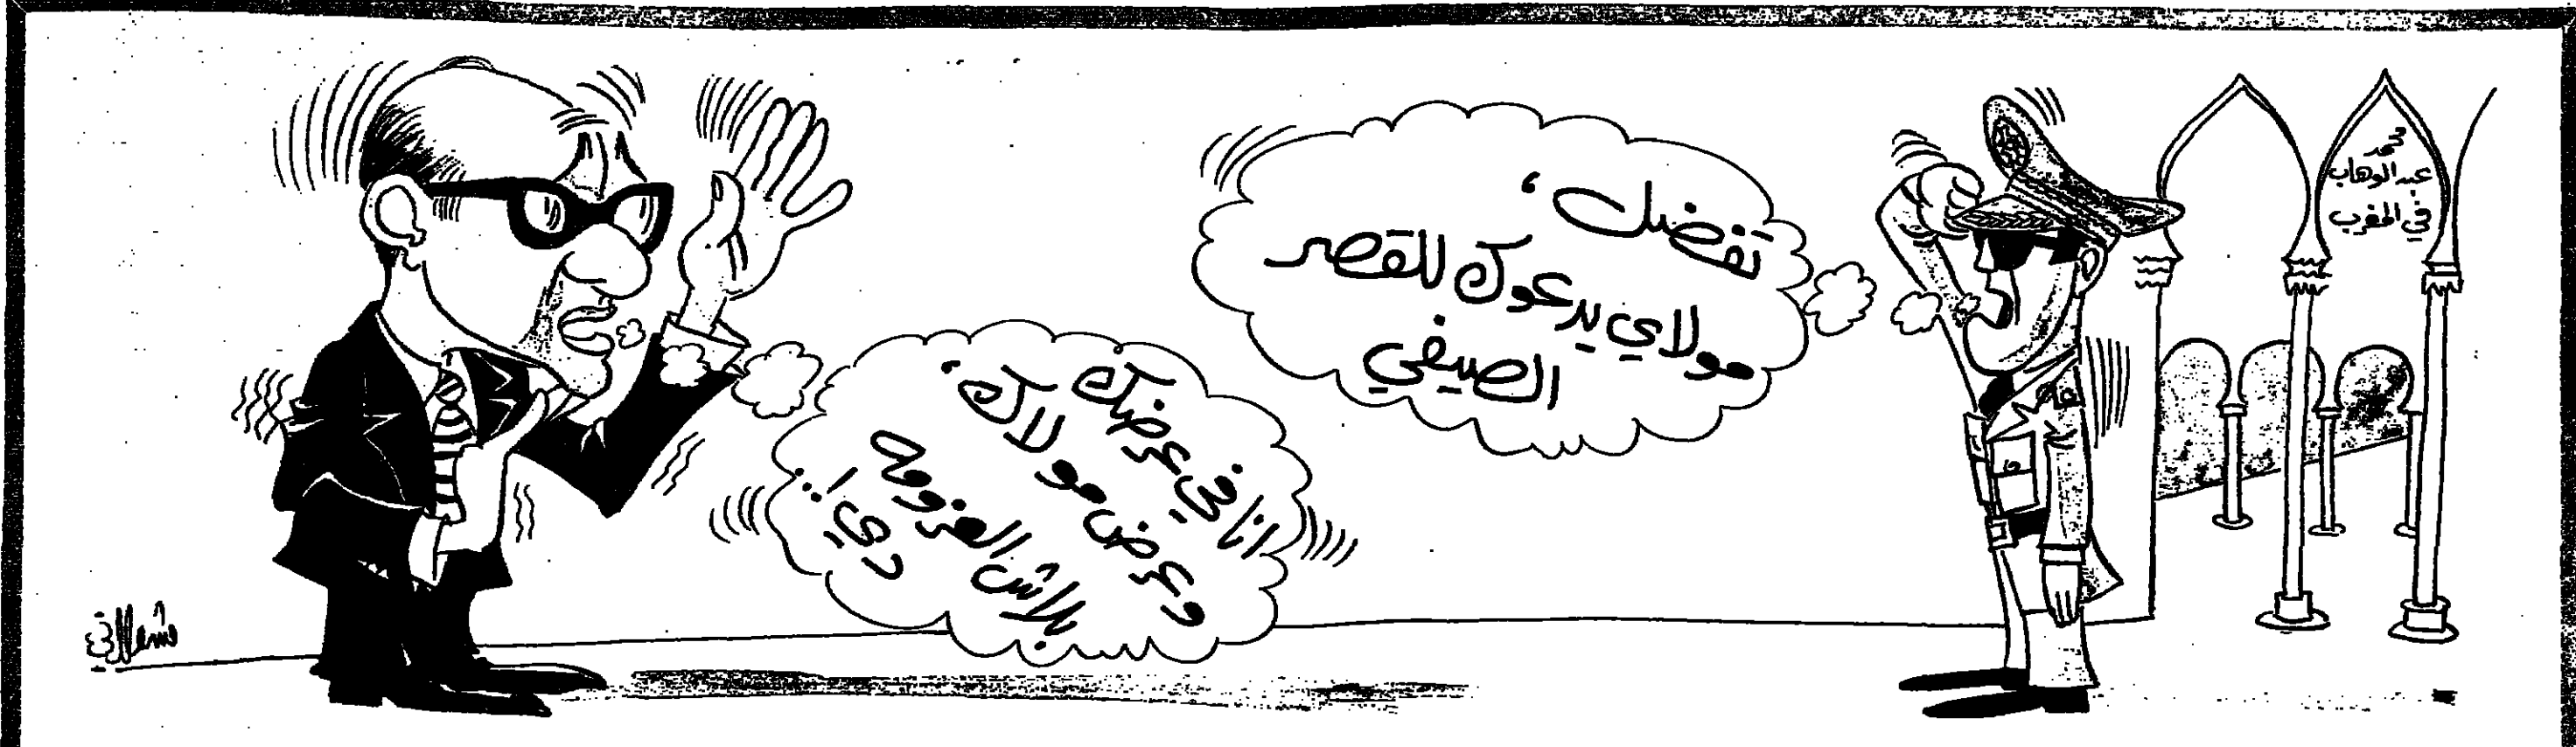 محمد
عبد الوهاب
في المغرب
تفضل،
مولاي يدعوك للقصر
الصيفي
انا في عرضك
وعرض مولاك،
بلاش العزومه
دي!..